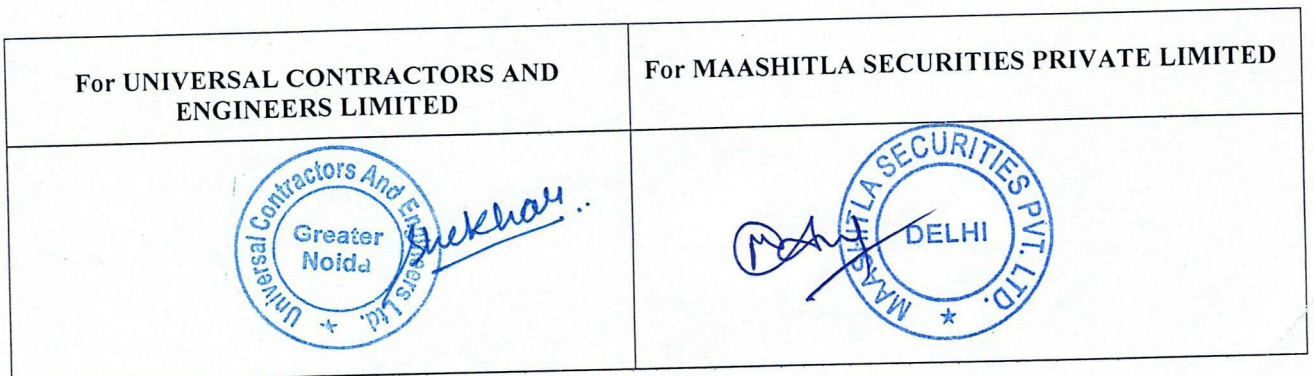 For UNIVERSAL CONTRACTORS AND
ENGINEERS LIMITED
For MAASHITLA SECURITIES PRIVATE LIMITED
Universal Contractors And Engineers Ltd.
Greater
Noida
Shekhar
MAASHITLA SECURITIES PVT. LTD.
DELHI